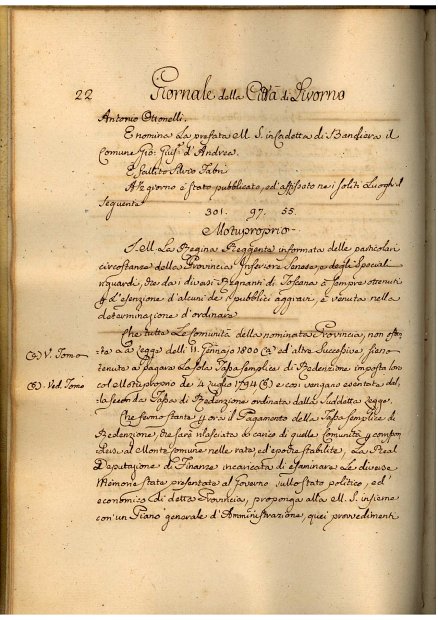 22 Giornale della Città di Livorno
Antonio Ottonelli.
E nomina La prefata M. S. in Cadetto di Bandiera il
Comune Gio: Gius: d'Andrea.
E fallito Silvio Fabri
A 12 giorno è stato pubblicato, ed affissato nei soliti Luoghi il
Seguente
301. 97. 55.
Motuproprio
S. M. La Regina Reggente informata delle particolari
circostanze della Provincia Inferiore Senese, e degli Speciali
riguardi, che dai diversi Regnanti di Toscana à sempre ottenuti
l'esenzione d'alcuni de' pubblici aggravi, è venuta nella
determinazione d'ordinare
Che tutte Le Comunità della nominata Provincia, non ostan-
(a) V. Tomo ta La Legge dell' 11. Gennajo 1800 (a) ed altre Successive, siano
tenute a pagare La Sola Tassa Semplice di Redenzione imposta
(B). Ved. Tomo col Motuproprio de' 4 Luglio 1794 (B) e così vengano esentate dal-
la seconda Tassa di Redenzione ordinata dalla Suddetta Legge.
Che fermo stante il Pagamento della Tassa Semplice di
Redenzione, che sarà rilasciata a carico di quelle Comunità
al Monte Comune nelle rate, ed epoche stabilite, La Real
Deputazione di Finanze incaricata di esaminare Le diverse
Memorie State presentate al Governo sullo stato politico, ed
economico di detta Provincia, proponga alla M. S. insieme
con un Piano generale d'Amministrazione, quei provvedimenti